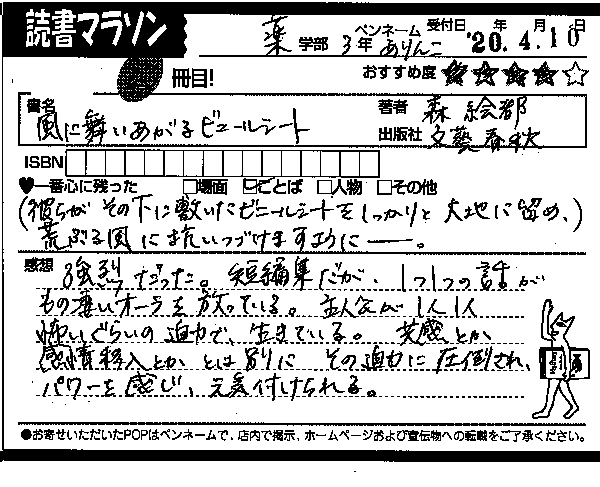 読書マラソン
薬 学部 3年 ペンネーム ありんこ 受付日 '20年 4月 10日
冊目!
おすすめ度 ★★★★☆
書名 風に舞いあがるビニールシート
著者 森 絵都
出版社 文藝春秋
ISBN
♥一番心に残った □場面 ☑ことば □人物 □その他
(彼らがその下に敷いたビニールシートをしっかりと大地に留め、)
荒ぶる風に抗いつづけますように――。
感想 強烈だった。短編集だが、1つ1つの話が
もの凄いオーラを放っている。主人公が1人1人
怖いぐらいの迫力で、生きている。共感とか
感情移入とかとは別に その迫力に圧倒され、
パワーを感じ、元気付けられる。
●お寄せいただいたPOPはペンネームで、店内で掲示、ホームページおよび宣伝物への転載をご了承ください。